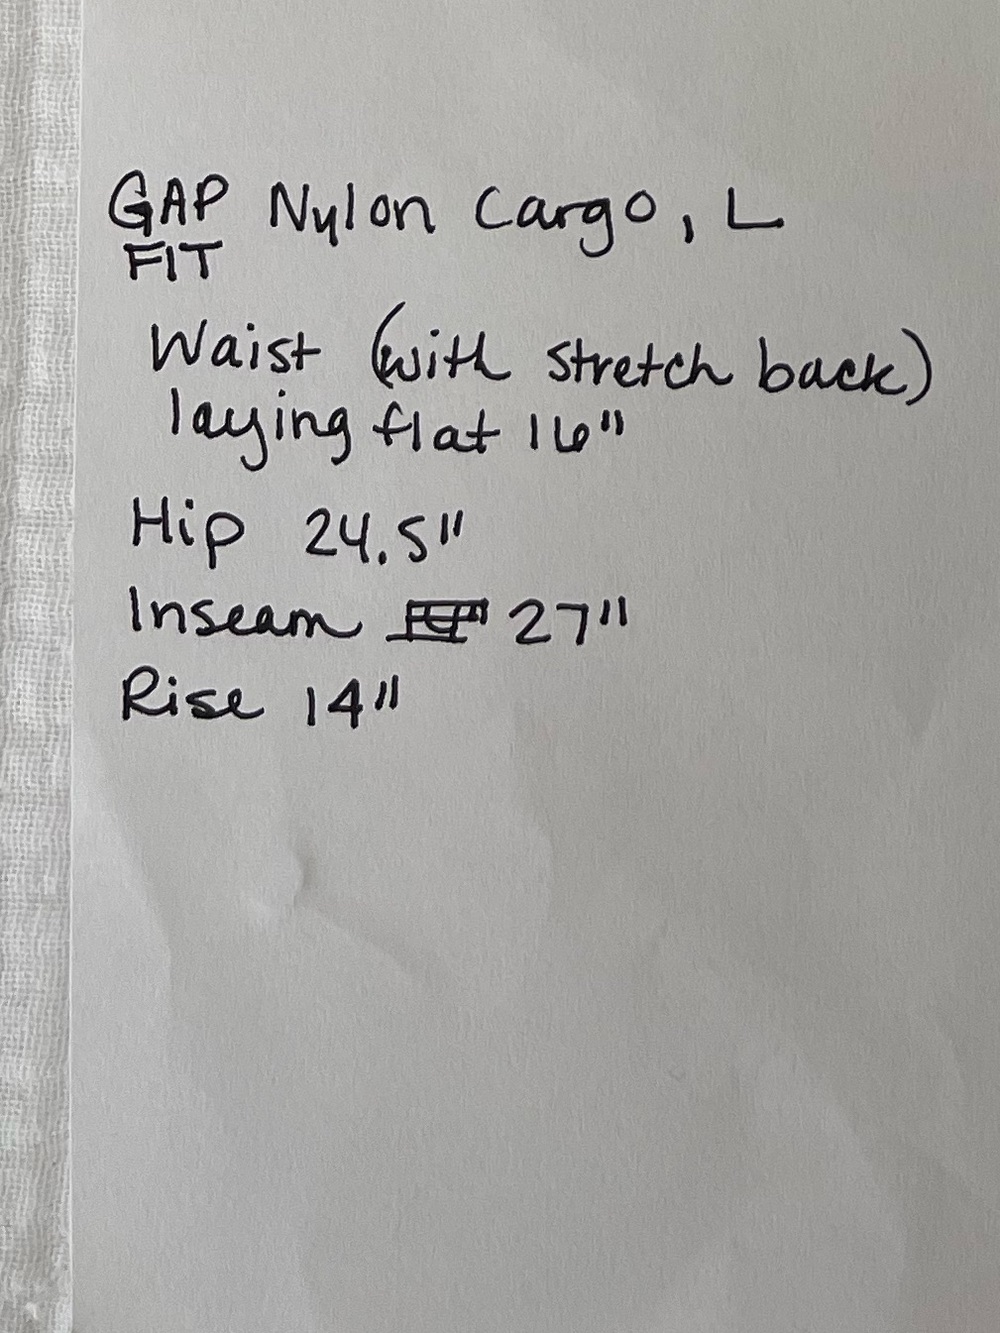 GAP Nylon Cargo, L
FIT
Waist (with stretch back)
laying flat 16"
Hip 24.5"
Inseam 27"
Rise 14"